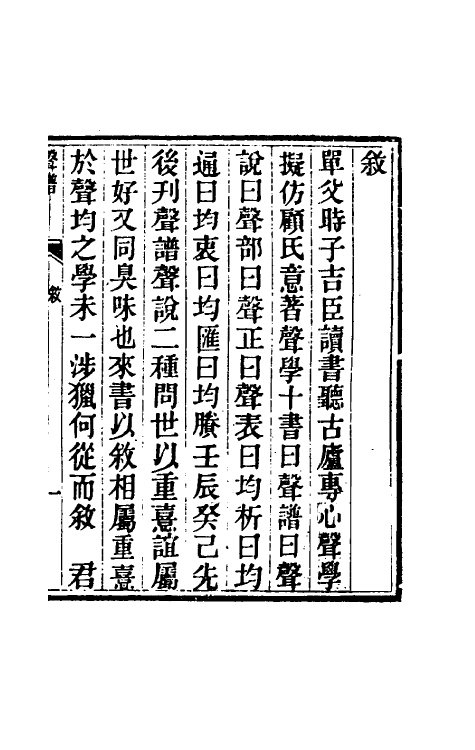 敘
單父時子吉臣讀書聽古廬專心聲學
擬仿顧氏意著聲學十書曰聲譜曰聲
說曰聲部曰聲正曰聲表曰均析曰均
通曰均衷曰均匯曰均賸壬辰癸巳先
後刊聲譜聲說二種問世以重憙誼屬
世好又同臭味也來書以敘相屬重憙
於聲均之學未一涉獵何從而敘　君
敘
一